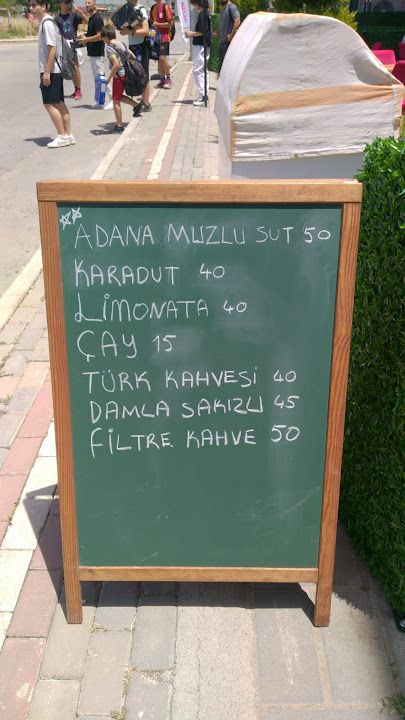 ADANA MUZLU SÜT 50
KARADUT 40
LİMONATA 40
ÇAY 15
TÜRK KAHVESİ 40
DAMLA SAKIZLI 45
FİLTRE KAHVE 50